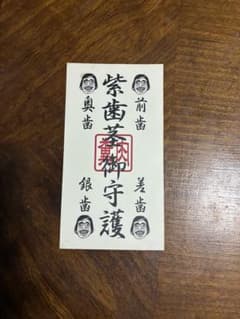 紫歯茎御守護
前歯
奥歯
差歯
銀歯